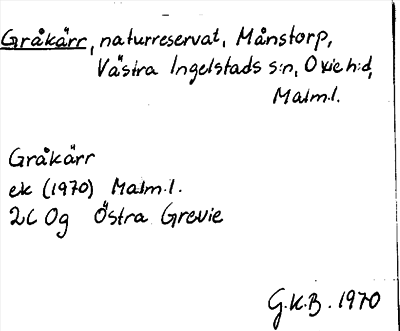 Gråkärr, naturreservat, Månstorp,
Västra Ingelstads s:n, Oxie h:d,
Malm.l.
Gråkärr
ek (1970) Malm.l.
2C 0g Östra Grevie
G.K.B. 1970